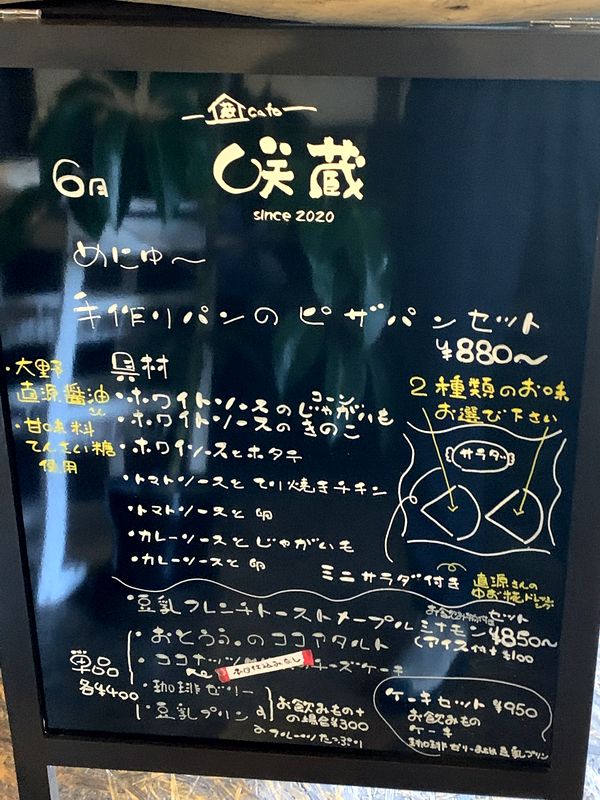 蔵cafe
咲蔵
since 2020
6月
めにゅ〜
手作りパンのピザパンセット
¥880〜
・大野
直源醤油
さん
・甘味料
てんさい糖
使用
具材
・ホワイトソースのじゃがいも
コーン
・ホワイトソースのきのこ
・ホワイソースとホタテ
・トマトソースとてり焼きチキン
・トマトソースと卵
・カレーソースとじゃがいも
・カレーソースと卵
2種類のお味
お選び下さい
サラダ
ミニサラダ付き
直源さんの
ゆず糀ドレッシング
・豆乳フレンチトーストメープルシナモン
お飲み物付
セット
¥850〜
(アイス付+¥100
単品
各¥400
・おとうふのココアタルト
・ココナッツ
チーズケーキ
本日仕込みなし
・珈琲ゼリー
・豆乳プリン
お飲みもの+
の場合¥300
ケーキセット ¥950
お飲みもの
ケーキ
珈琲ゼリーまたは豆乳プリン